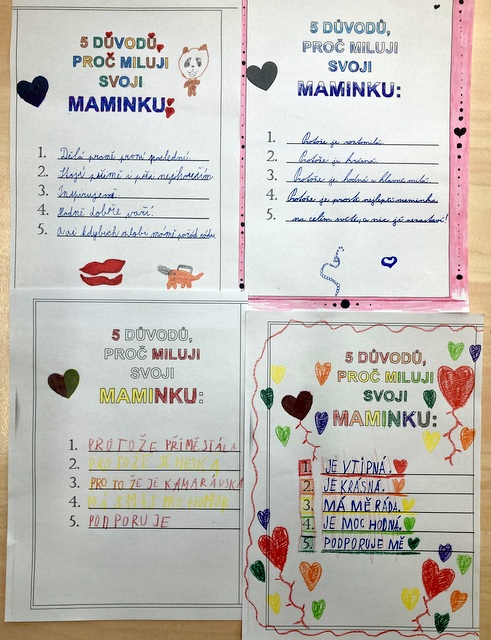 5 DŮVODŮ,
PROČ MILUJI
SVOJI
MAMINKU:
1. Dělá pro mě první poslední.
2. Stojí při mě i v
3. Inspiruje mě
4. Hodně dobře vaří.
5. A ať kdybych zlobi má mě pořád ráda
5 DŮVODŮ,
PROČ MILUJI
SVOJI
MAMINKU:
1. Protože je roztomilá.
2. Protože je krásná.
3. Protože je hodná a hlavně milá.
4. Protože je prostě nejlepší maminka
5. na celém světě, a nic jí nezastaví!
5 DŮVODŮ,
PROČ MILUJI
SVOJI
MAMINKU:
1. PROTOŽE PŘI MĚ STÁLA
2. PROTOŽE JE HEZKÁ
3. PROTOŽE JE KAMARÁDSKÁ
4. MÁ SMIS PRO HUMOR
5. PODPORUJE
5 DŮVODŮ,
PROČ MILUJI
SVOJI
MAMINKU:
1. JE VTIPNÁ.
2. JE KRÁSNÁ.
3. MÁ MĚ RÁDA.
4. JE MOC HODNÁ.
5. PODPORUJE MĚ